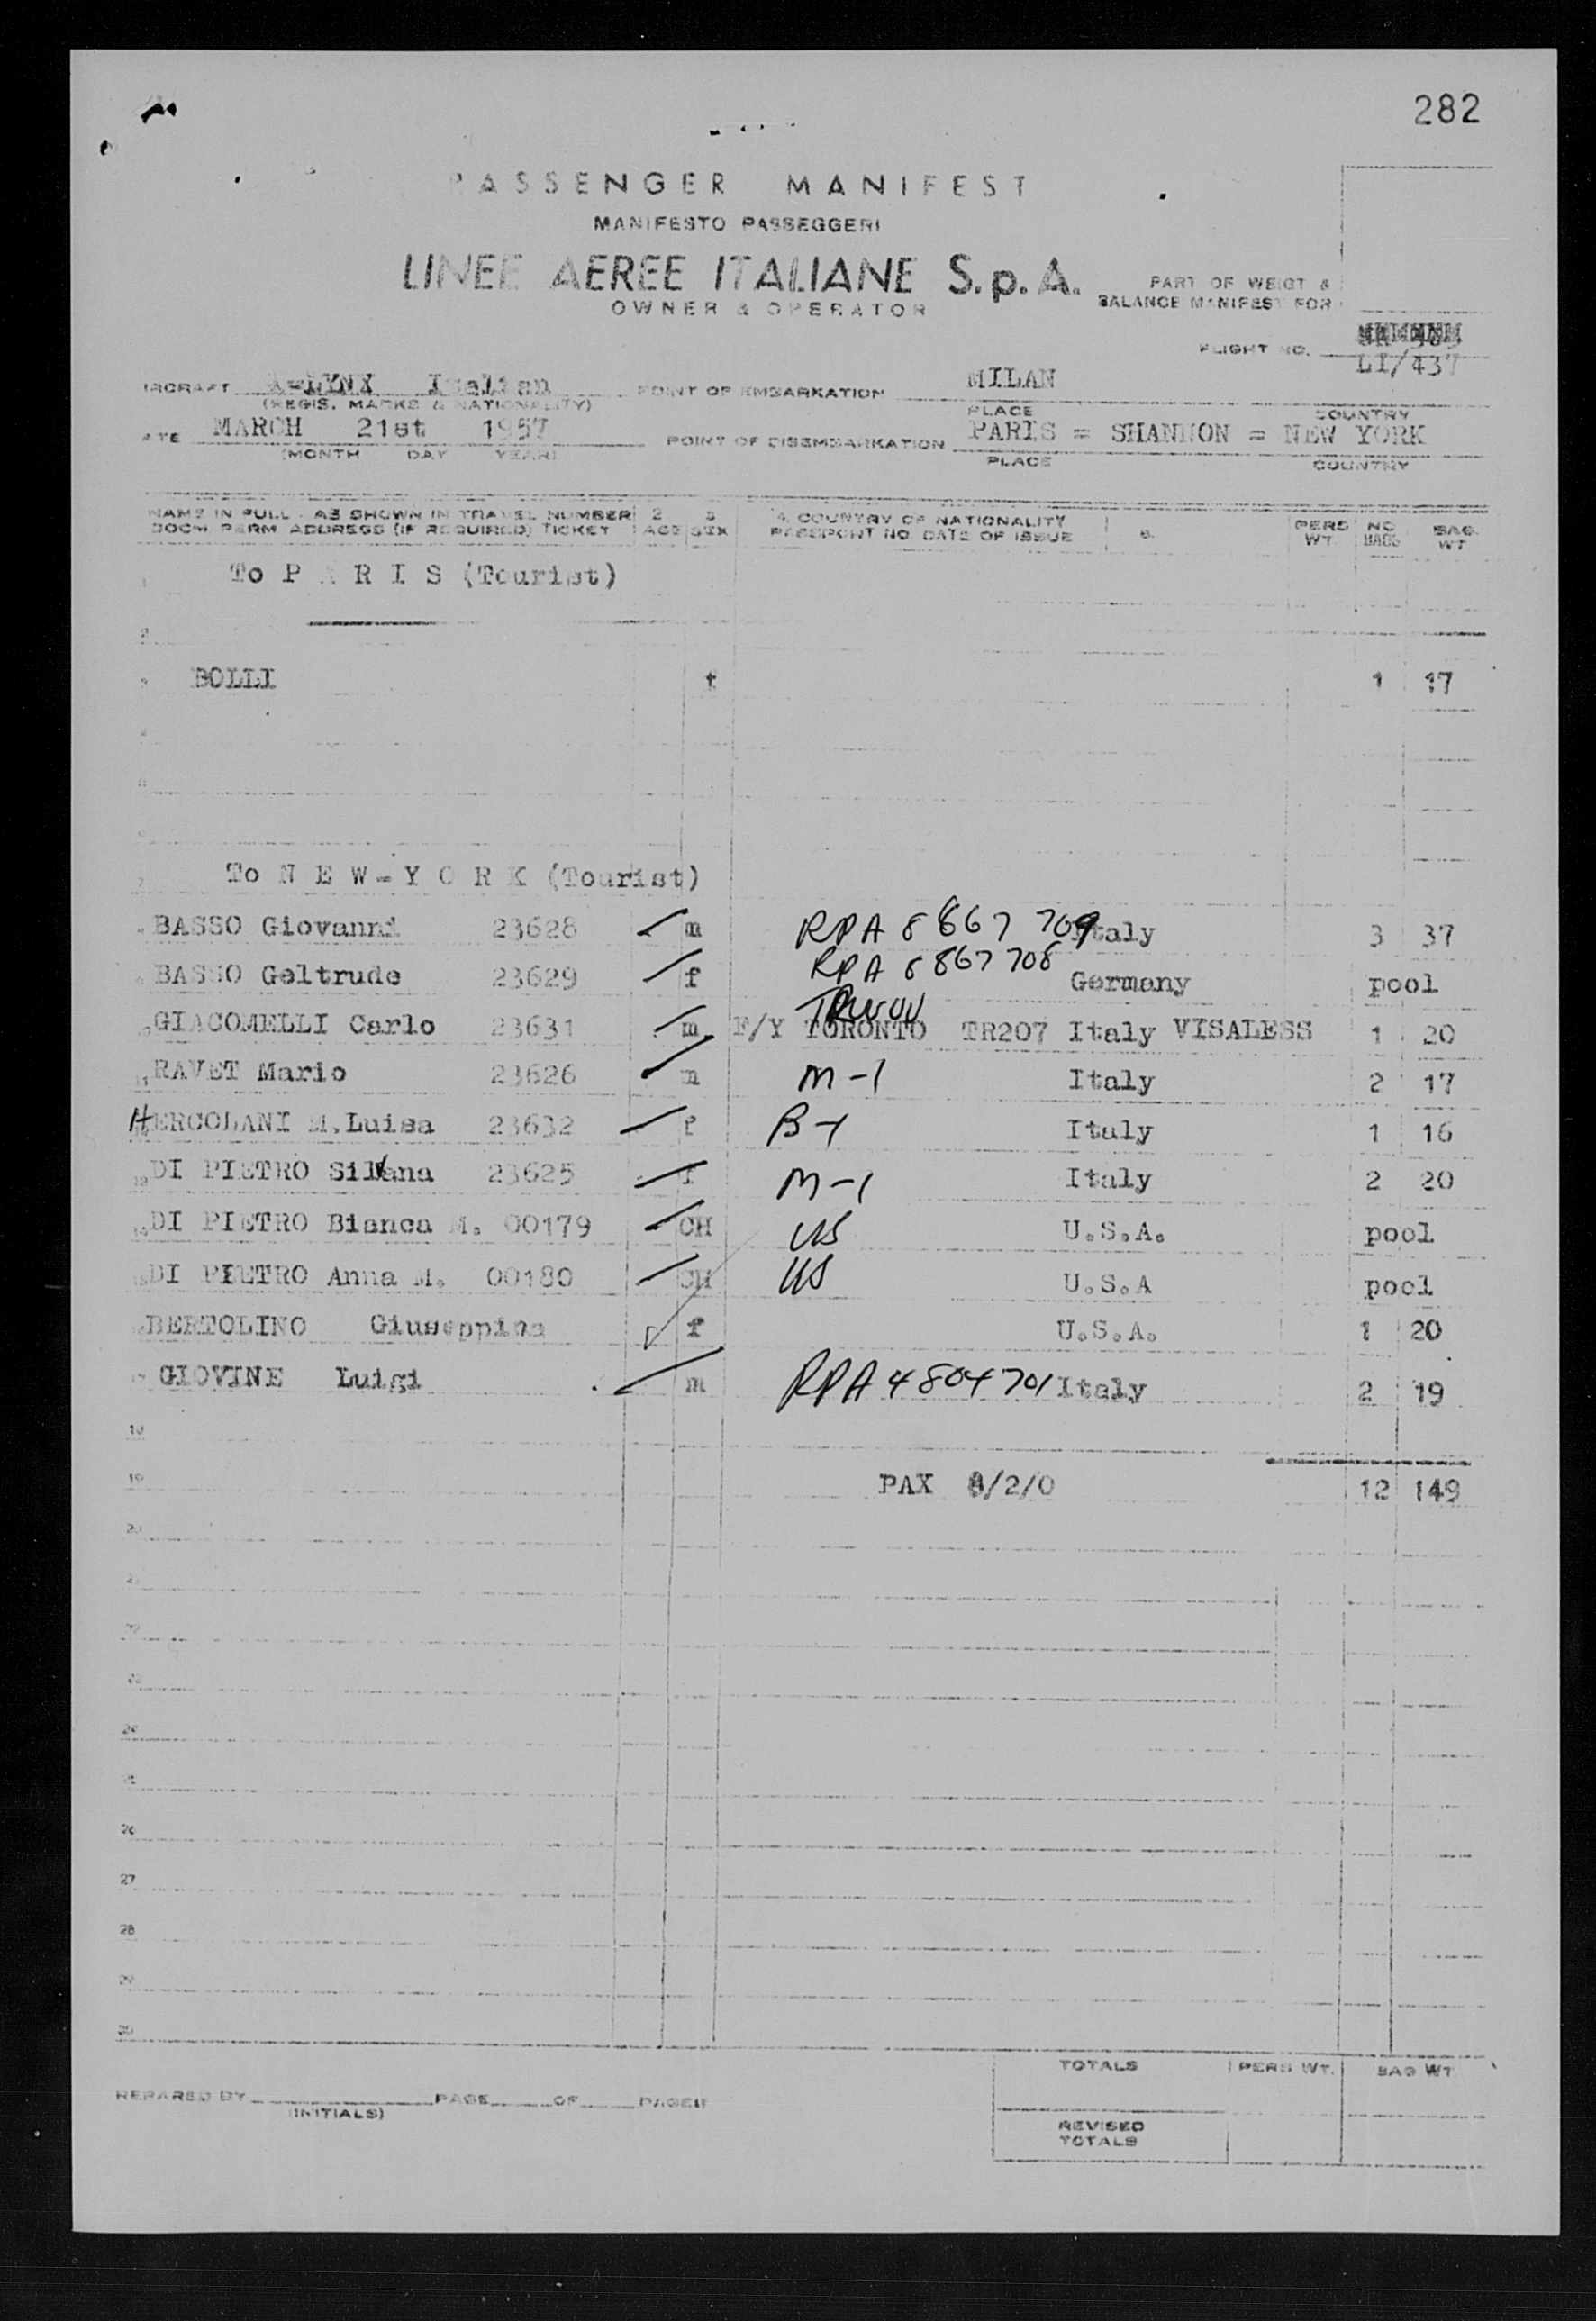 282
PASSENGER MANIFEST
MANIFESTO PASSEGGERI
LINEE AEREE ITALIANE S.p.A.
OWNER & OPERATOR
PART OF WEIGT &
BALANCE MANIFEST FOR
FLIGHT NO.
LI/437
IRCRAFT I=LYNX Italian POINT OF EMBARKATION MILAN
(REGIS. MARKS & NATIONALITY) PLACE COUNTRY
ATE MARCH 21st 1957 POINT OF DISEMBARKATION PARIS = SHANNON = NEW YORK
(MONTH DAY YEAR) PLACE COUNTRY
NAME IN FULL AS SHOWN IN TRAVEL NUMBER 2 3 4. COUNTRY OF NATIONALITY PERS NO BAG.
DOCM PERM ADDRESS (IF REQUIRED) TICKET AGE SEX PASSPORT NO. DATE OF ISSUE 5. WT BAGS WT
To P A R I S (Tourist)
BOLLI f 1 17
To N E W = Y O R K (Tourist)
BASSO Giovanni 23628 m RPA 8867 709 Italy 3 37
BASSO Geltrude 23629 f RPA 8867708 Germany pool
GIACOMELLI Carlo 23631 m F/Y TORONTO TR207 Italy VISALESS 1 20
RAVET Mario 23626 m M-1 Italy 2 17
HERCOLANI M.Luisa 23632 f B-1 Italy 1 16
DI PIETRO Silvana 23625 f M-1 Italy 2 20
DI PIETRO Bianca M. 00179 CH US U.S.A. pool
DI PIETRO Anna M. 00180 CH US U.S.A pool
BERTOLINO Giuseppina f U.S.A. 1 20
GIOVINE Luigi m RPA 4804701 Italy 2 19
18
19 PAX 8/2/0 12 149
20
21
22
23
24
25
26
27
28
29
30
TOTALS PERS WT. BAG WT
REPARED BY PAGE OF PAGES
(INITIALS)
REVISED
TOTALS